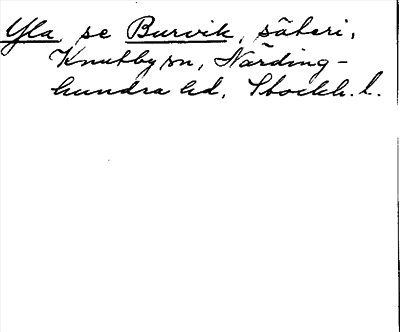 Yla se Burvik, säteri,
Knutby sn, Närding-
hundra hd, Stockh. l.